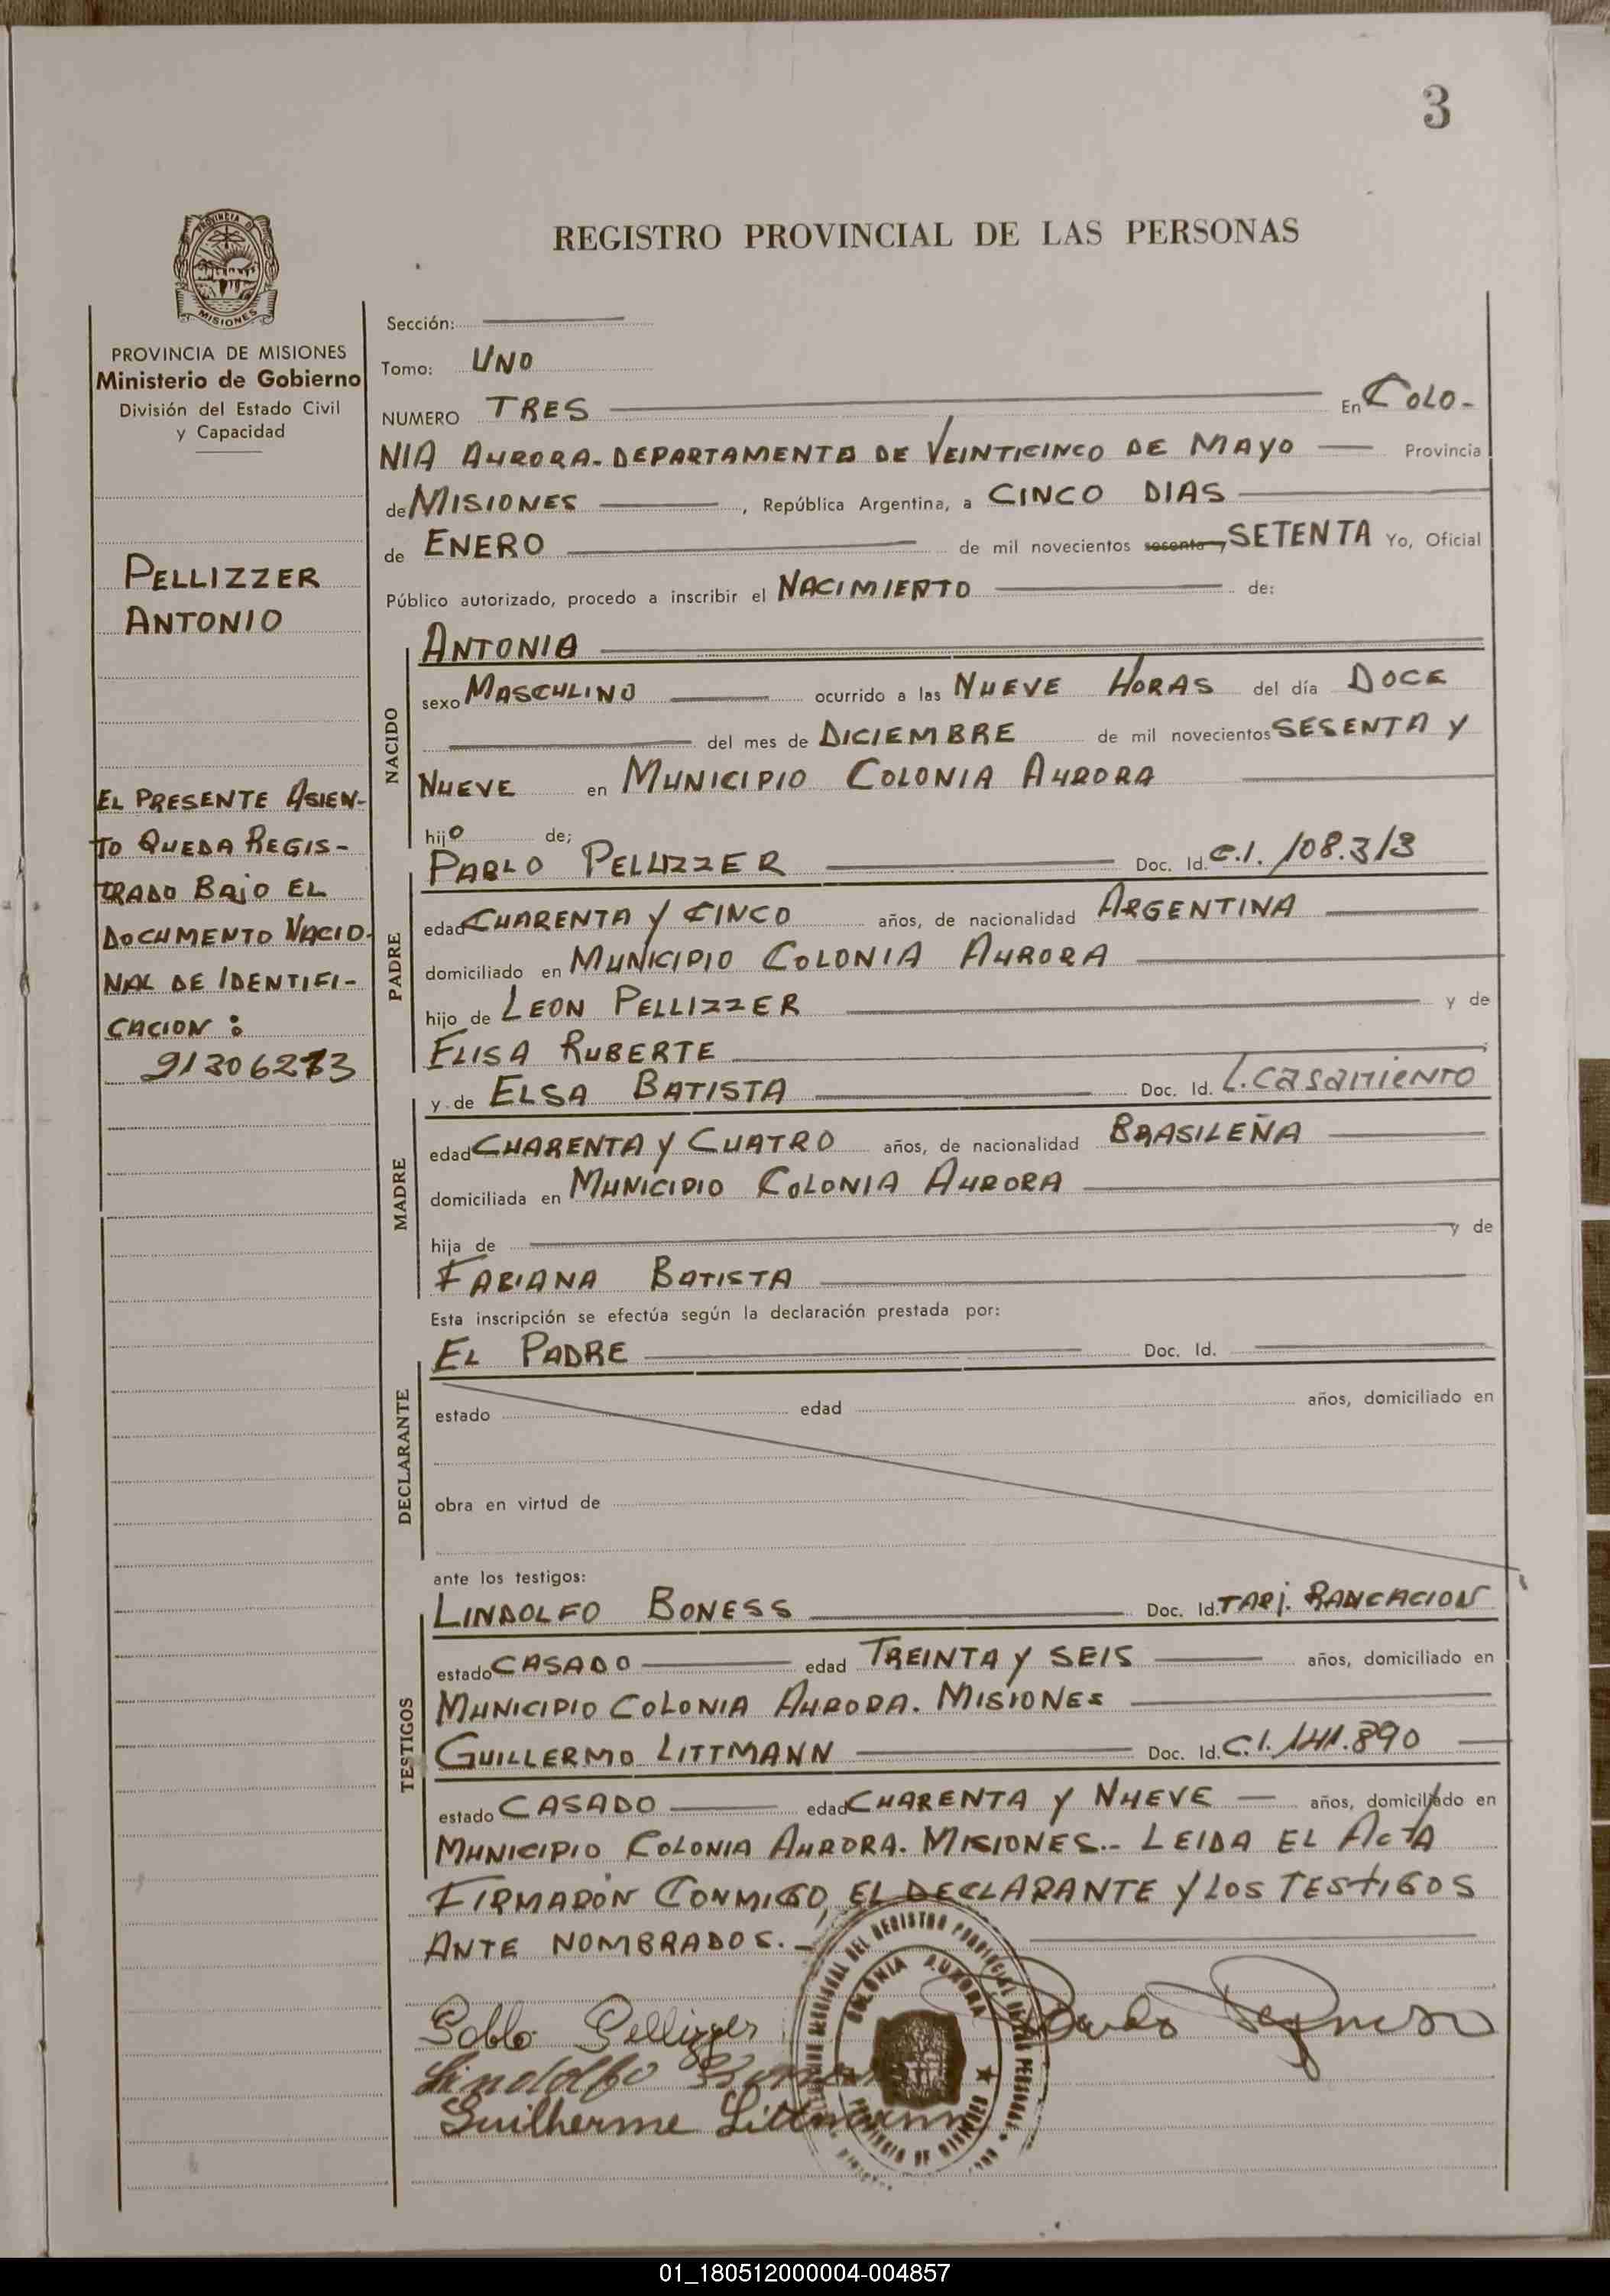 3
PROVINCIA DE
MISIONES
REGISTRO PROVINCIAL DE LAS PERSONAS
PROVINCIA DE MISIONES
Ministerio de Gobierno
División del Estado Civil
y Capacidad
PELLIZZER
ANTONIO
EL PRESENTE ASIEN-
TO QUEDA REGIS-
TRADO BAJO EL
DOCUMENTO NACIO-
NAL DE IDENTIFI-
CACION:
Sección:
Tomo: UNO
NUMERO TRES En COLO-
NIA AURORA. DEPARTAMENTO DE VEINTICINCO DE MAYO Provincia
de MISIONES, República Argentina, a CINCO DIAS
de ENERO de mil novecientos sesenta y SETENTA Yo, Oficial
Público autorizado, procedo a inscribir el NACIMIENTO de:
NACIDO
ANTONIA
sexo MASCULINO ocurrido a las NUEVE HORAS del día DOCE
del mes de DICIEMBRE de mil novecientos SESENTA Y
NUEVE en MUNICIPIO COLONIA AURORA
hijo de;
PADRE
PABLO PELLIZZER Doc. Id. C.I. 108.313
edad CUARENTA Y CINCO años, de nacionalidad ARGENTINA
domiciliado en MUNICIPIO COLONIA AURORA
hijo de LEON PELLIZZER y de
ELISA RUBERTE
MADRE
y de ELSA BATISTA Doc. Id. L. CASAMIENTO
edad CUARENTA Y CUATRO años, de nacionalidad BRASILEÑA
domiciliada en MUNICIPIO COLONIA AURORA
hija de y de
FABIANA BATISTA
Esta inscripción se efectúa según la declaración prestada por:
DECLARANTE
EL PADRE Doc. Id.
estado edad años, domiciliado en
obra en virtud de
ante los testigos:
TESTIGOS
LINDOLFO BONESS Doc. Id. TARJ. RANCACION
estado CASADO edad TREINTA Y SEIS años, domiciliado en
MUNICIPIO COLONIA AURORA. MISIONES
GUILLERMO LITTMANN Doc. Id. C.I. 141.890
estado CASADO edad CUARENTA Y NUEVE años, domiciliado en
MUNICIPIO COLONIA AURORA. MISIONES.- LEIDA EL ACTA
FIRMARON CONMIGO, EL DECLARANTE Y LOS TESTIGOS
ANTE NOMBRADOS.-
DEL REGISTRO PROVINCIAL DE LAS PERSONAS
COLONIA AURORA
PROVINCIA DE MISIONES
Pablo Pellizzer
Lindolfo
Guilherme Littmann
01_180512000004-004857